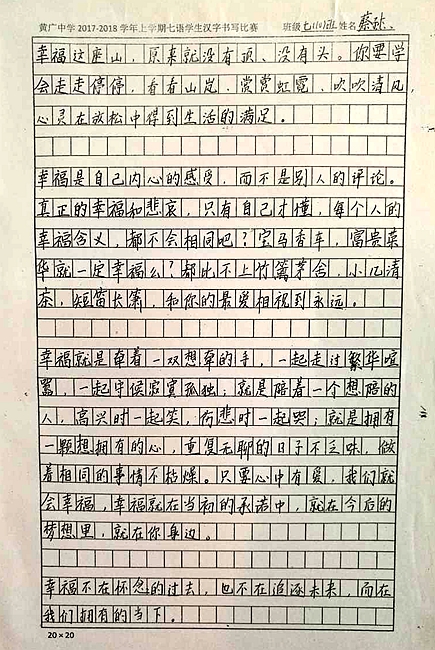 黄广中学2017-2018学年上学期七语学生汉字书写比赛 班级七(10)班姓名蔡
幸福这座山，原来就没有顶、没有头。你要学
会走走停停，看看山岚、赏赏虹霓、吹吹清风，
心灵在放松中得到生活的满足。
幸福是自己内心的感受，而不是别人的评论。
真正的幸福和悲哀，只有自己才懂，每个人的
幸福含义，都不会相同吧？宝马香车，富贵荣
华就一定幸福么？都比不上竹篱茅舍，小几清
茶，短笛长箫，和你的最爱相视到永远。
幸福就是牵着一双想牵的手，一起走过繁华喧
嚣，一起守候寂寞孤独；就是陪着一个想陪的
人，高兴时一起笑，伤悲时一起哭；就是拥有
一颗想拥有的心，重复无聊的日子不乏味，做
着相同的事情不枯燥。只要心中有爱，我们就
会幸福，幸福就在当初的承诺中，就在今后的
梦想里，就在你身边。
幸福不在怀念的过去，也不在追逐未来，而在
我们拥有的当下。
20×20